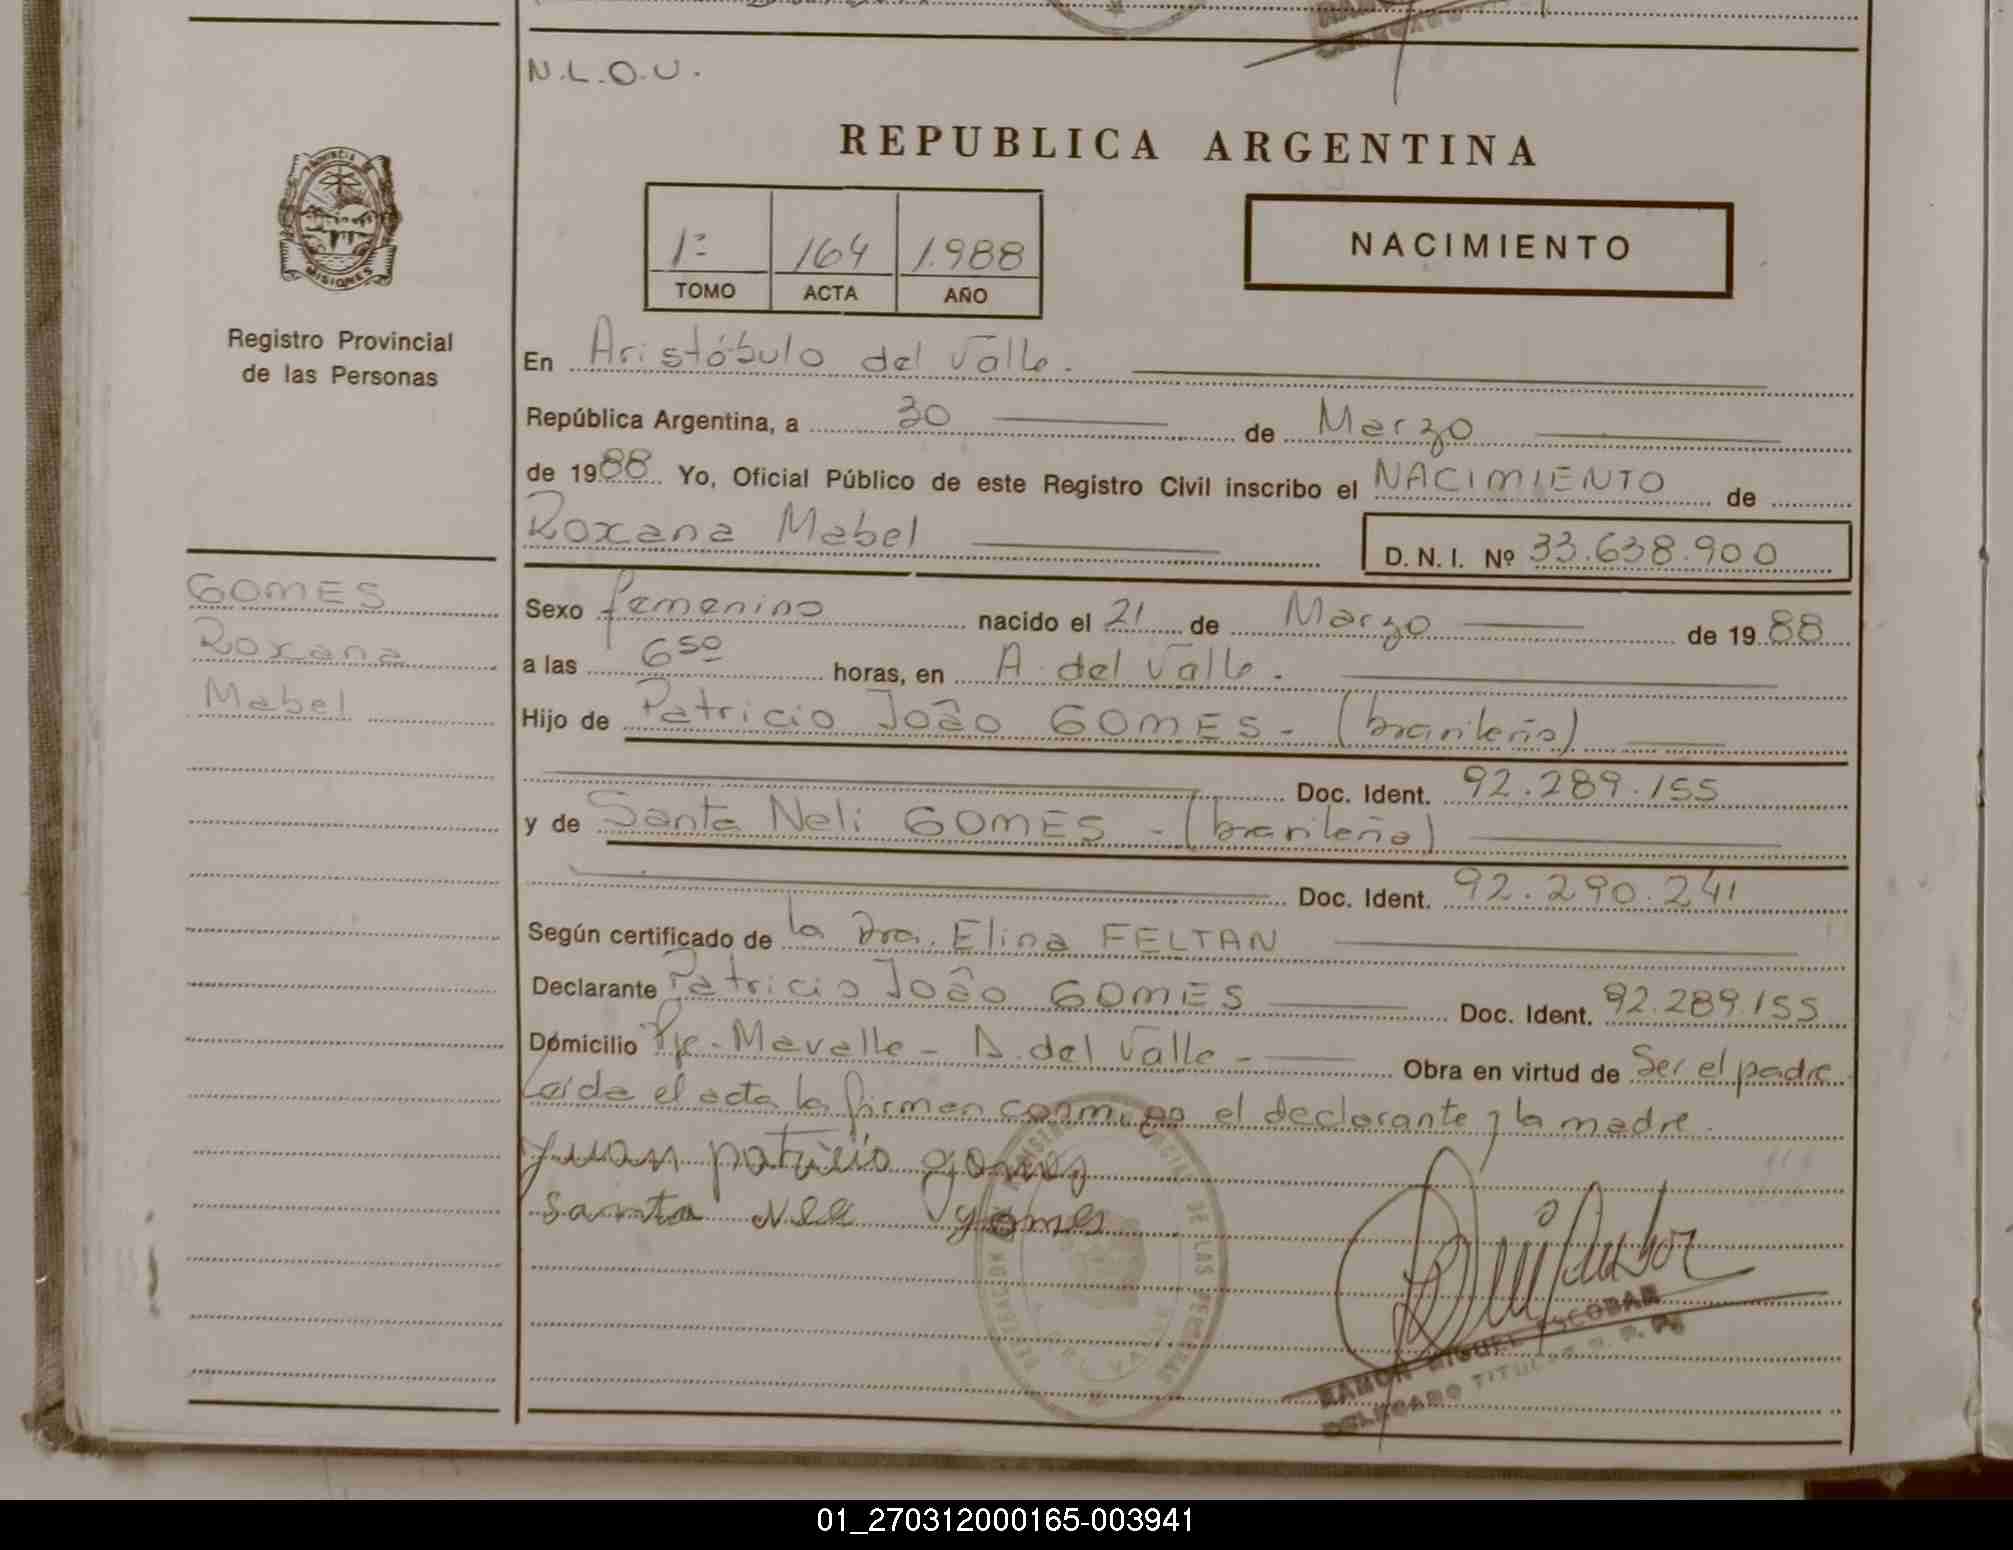 N.L.O.U.
REPUBLICA ARGENTINA
PROVINCIA
MISIONES
1º 164 1.988
TOMO ACTA AÑO
NACIMIENTO
Registro Provincial
de las Personas
En Aristóbulo del Valle.
República Argentina, a 30 de Marzo
de 1988 Yo, Oficial Público de este Registro Civil inscribo el NACIMIENTO de
Roxana Mabel D. N. I. Nº 33.638.900
GOMES
Roxana
Mabel
Sexo femenino nacido el 21 de Marzo de 1988
a las 6 50 horas, en A. del Valle.
Hijo de Patricio Joâo GOMES - (brasileño)
Doc. Ident. 92.289.155
y de Santa Neli GOMES - (brasileña)
Doc. Ident. 92.290.241
Según certificado de la Dra. Elina FELTAN
Declarante Patricio Joâo GOMES Doc. Ident. 92.289.155
Domicilio Pje. Mavalle - A. del Valle - Obra en virtud de Ser el padre
Leída el acta la firman conmigo el declarante y la madre.
Juan patricio gomes
Santa Neli gomes
RAMON MIGUEL ESCOBAR
DELEGADO TITULAR R. P. P.
01_270312000165-003941